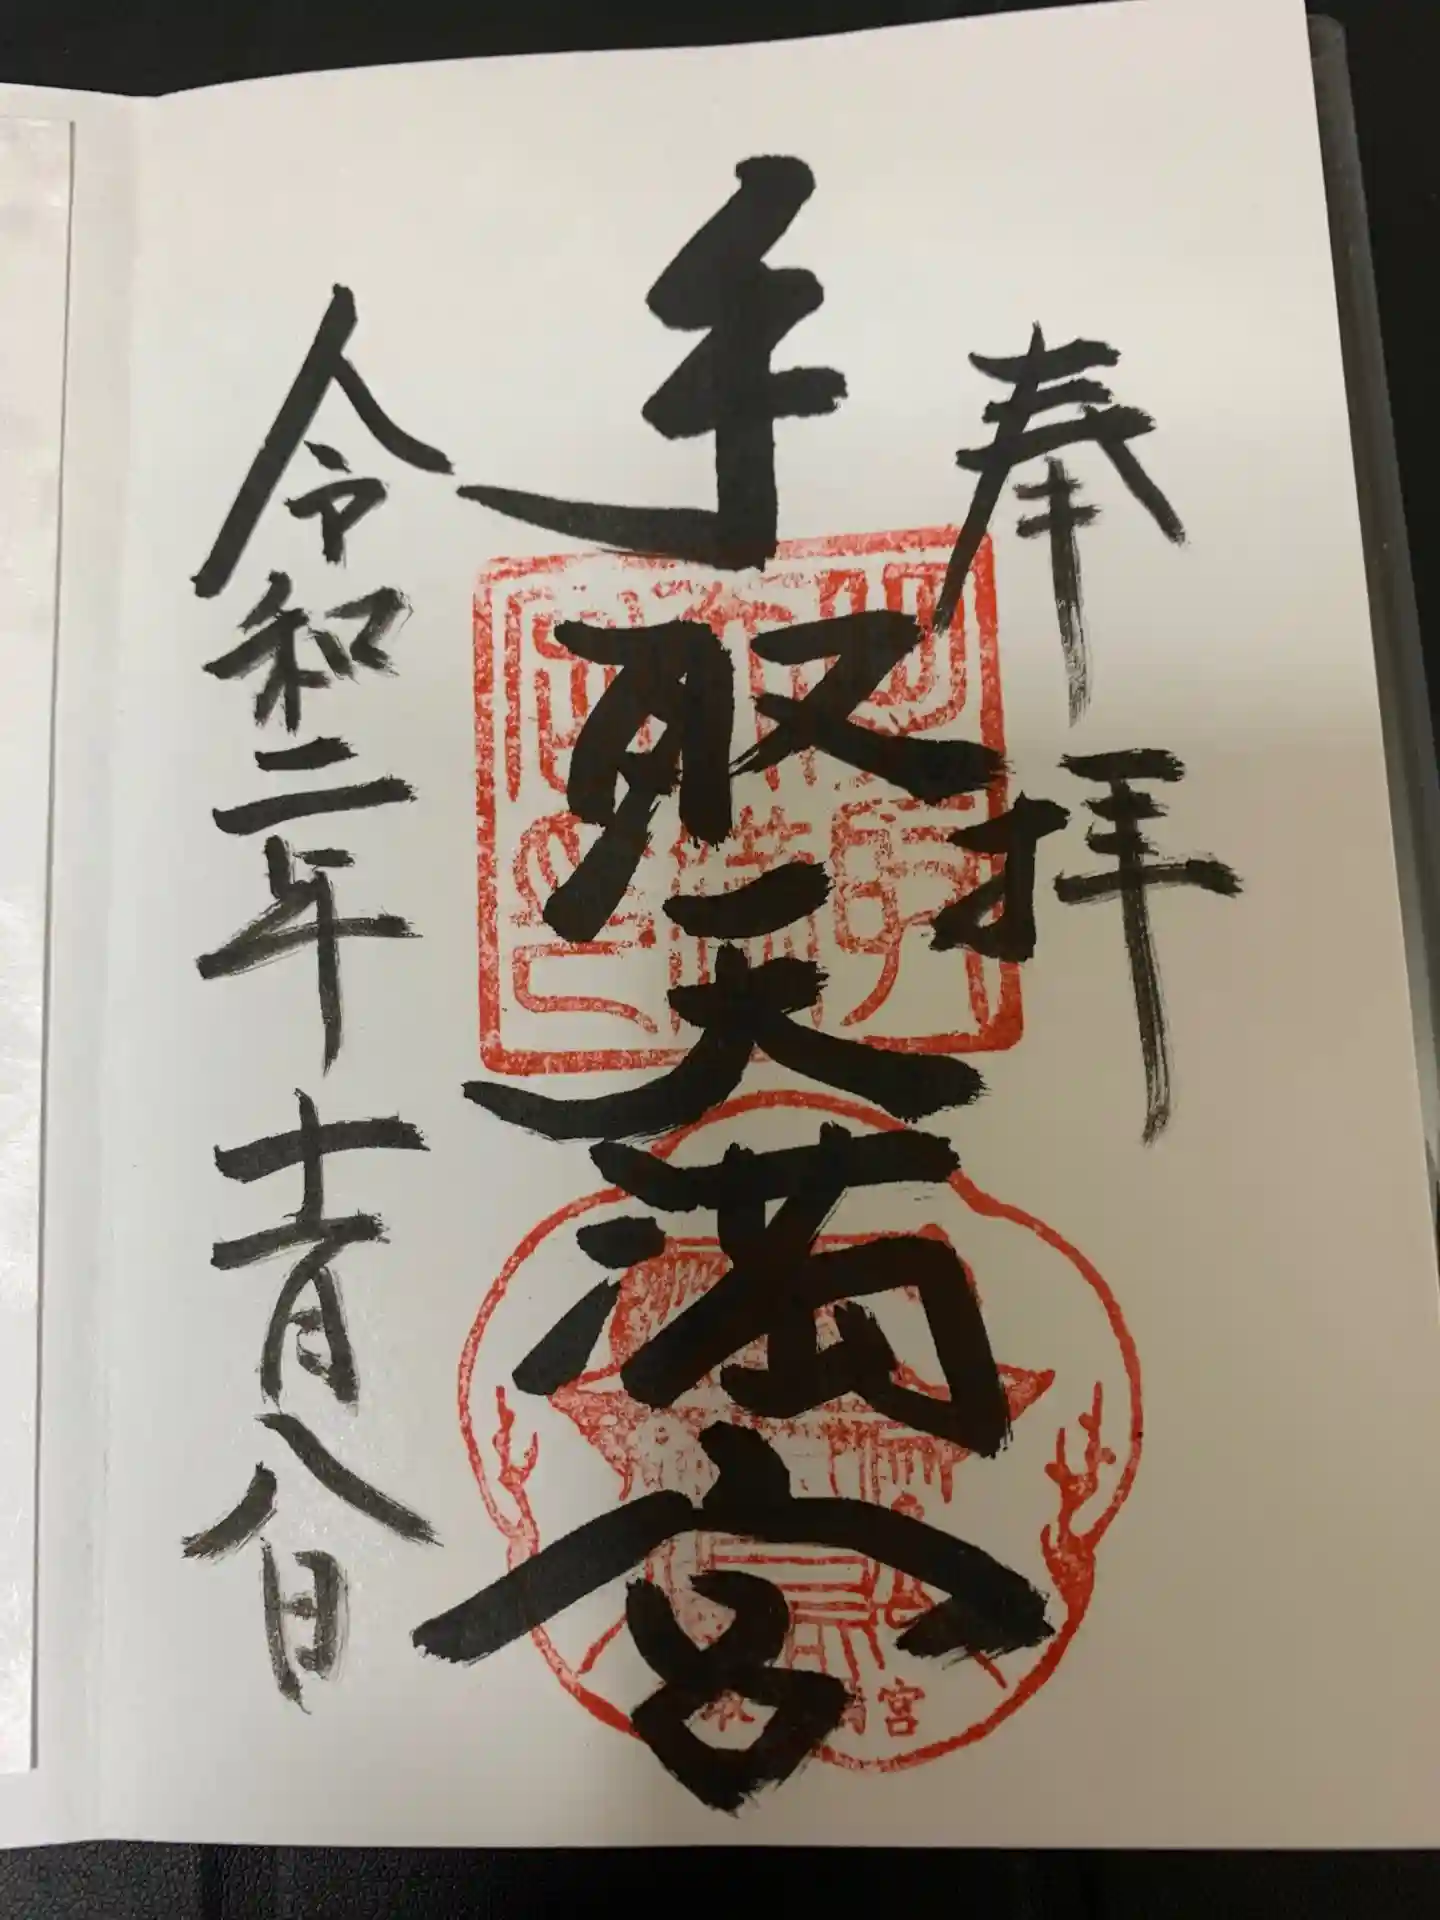 奉拝
手取天満宮
令和二年十一月八日
宮